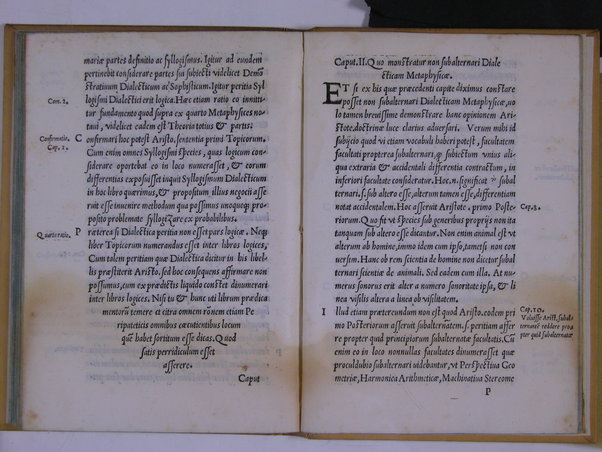 mariæ partes definitio ac syllogismus. Igitur ad eundem
pertinebit considerare partes sui subiecti videlicet Demõ
stratiuum Dialecticum ac Sophisticum. Igitur peritia Syl
logismi Dialectici erit logica. Hæc etiam ratio eo innitti-
Con. 2.
tur fundamento quod supra ex quarto Metaphysices no
taui, videlicet eadem est Theoria totius & partis.
Confirmatio.
Cap. 2.
Confirmari hoc potest Aristo. sententia primi Topicorum.
Cum enim omnes Syllogismi species, quas logicum con-
siderare oportebat eo in loco numerasset, & eorum
differentias exposuisset inquit Syllogismum Dialecticum
in hoc libro quærimus, & propositum illius negocii asse
ruit esse inuenire methodum qua possimus
proposito problemate syllogizare ex probabilibus.
Quarta ratio.
Præterea si Dialectica peritia non esset pars logicæ. Neq3
liber Topicorum numerandus esset inter libros logices,
Cum talem peritiam quæ Dialectica dicitur in his libel-
lis præstiterit Aristo. sed hoc consequens affirmare non
possumus, cum ex prædictis liquido constet dinumerari
inter libros logices. Nisi tu & hunc uti librum prædica
mentorũ temere et citra omnem rõnem etiam Pe
ripateticis omnibus cæcutientibus locum
quẽ habet sortitum esse dicas. Quod
satis perridiculum esset
asserere.
Caput
Caput. II. Quo monstratur non subalternari Diale
cticam Metaphysicæ.
Et si ex his quæ præcedenti capite diximus constare
posset non subalternari Dialecticam Metaphysicæ, uo
lo tamen breuissime demonstrare hanc opinionem Ari
stote. doctrinæ luce clarius aduersari. Verum nihil id
subijcio quod vt etiam vocabuli haberi potest, facultatem
facultati propterea subalternari, quod subiectum vnius ali-
qua extraria & accidentali differentia contractum, in
inferiori facultate consideratur. Hoc.n. significat subal
ternari.s. sub altero esse, alterum tamen esse, differentiam
Cap. 3.
notat accidentalem. Hoc asseruit Aristote. primo Poste-
riorum. Quo fit vt species sub generibus proprijs non ita
tanquam sub altero esse dicantur. Non enim animal est vt
alterum ab homine, immo idem cum ipso, tametsi non con
uersim. Hanc ob rem scientia de homine non dicetur subal
ternari scientiæ de animali. Sed eadem cum illa. At nu-
merus sonorus erit alter a numero sonoritate ipsa, & li
nea visilis altera a linea ob visilitatem.
Cap. 10.
Voluisse Arist. subal
ternatã reddere pro
pter quid subalternatæ
Illud etiam prætereundum non est quod Aristo. eodem pri
mo Posteriorum asseruit subalternatem.s. peritiam asser
ere propter quid principiorum subalternatæ facultatis. Cũ
enim eo in loco nonnullas facultates dinumerasset quæ
proculdubio subalternari uidebantur, vt Perspectiua Geo
metriæ, Harmonica Arithmeticæ, Machinatiua Stereome
P